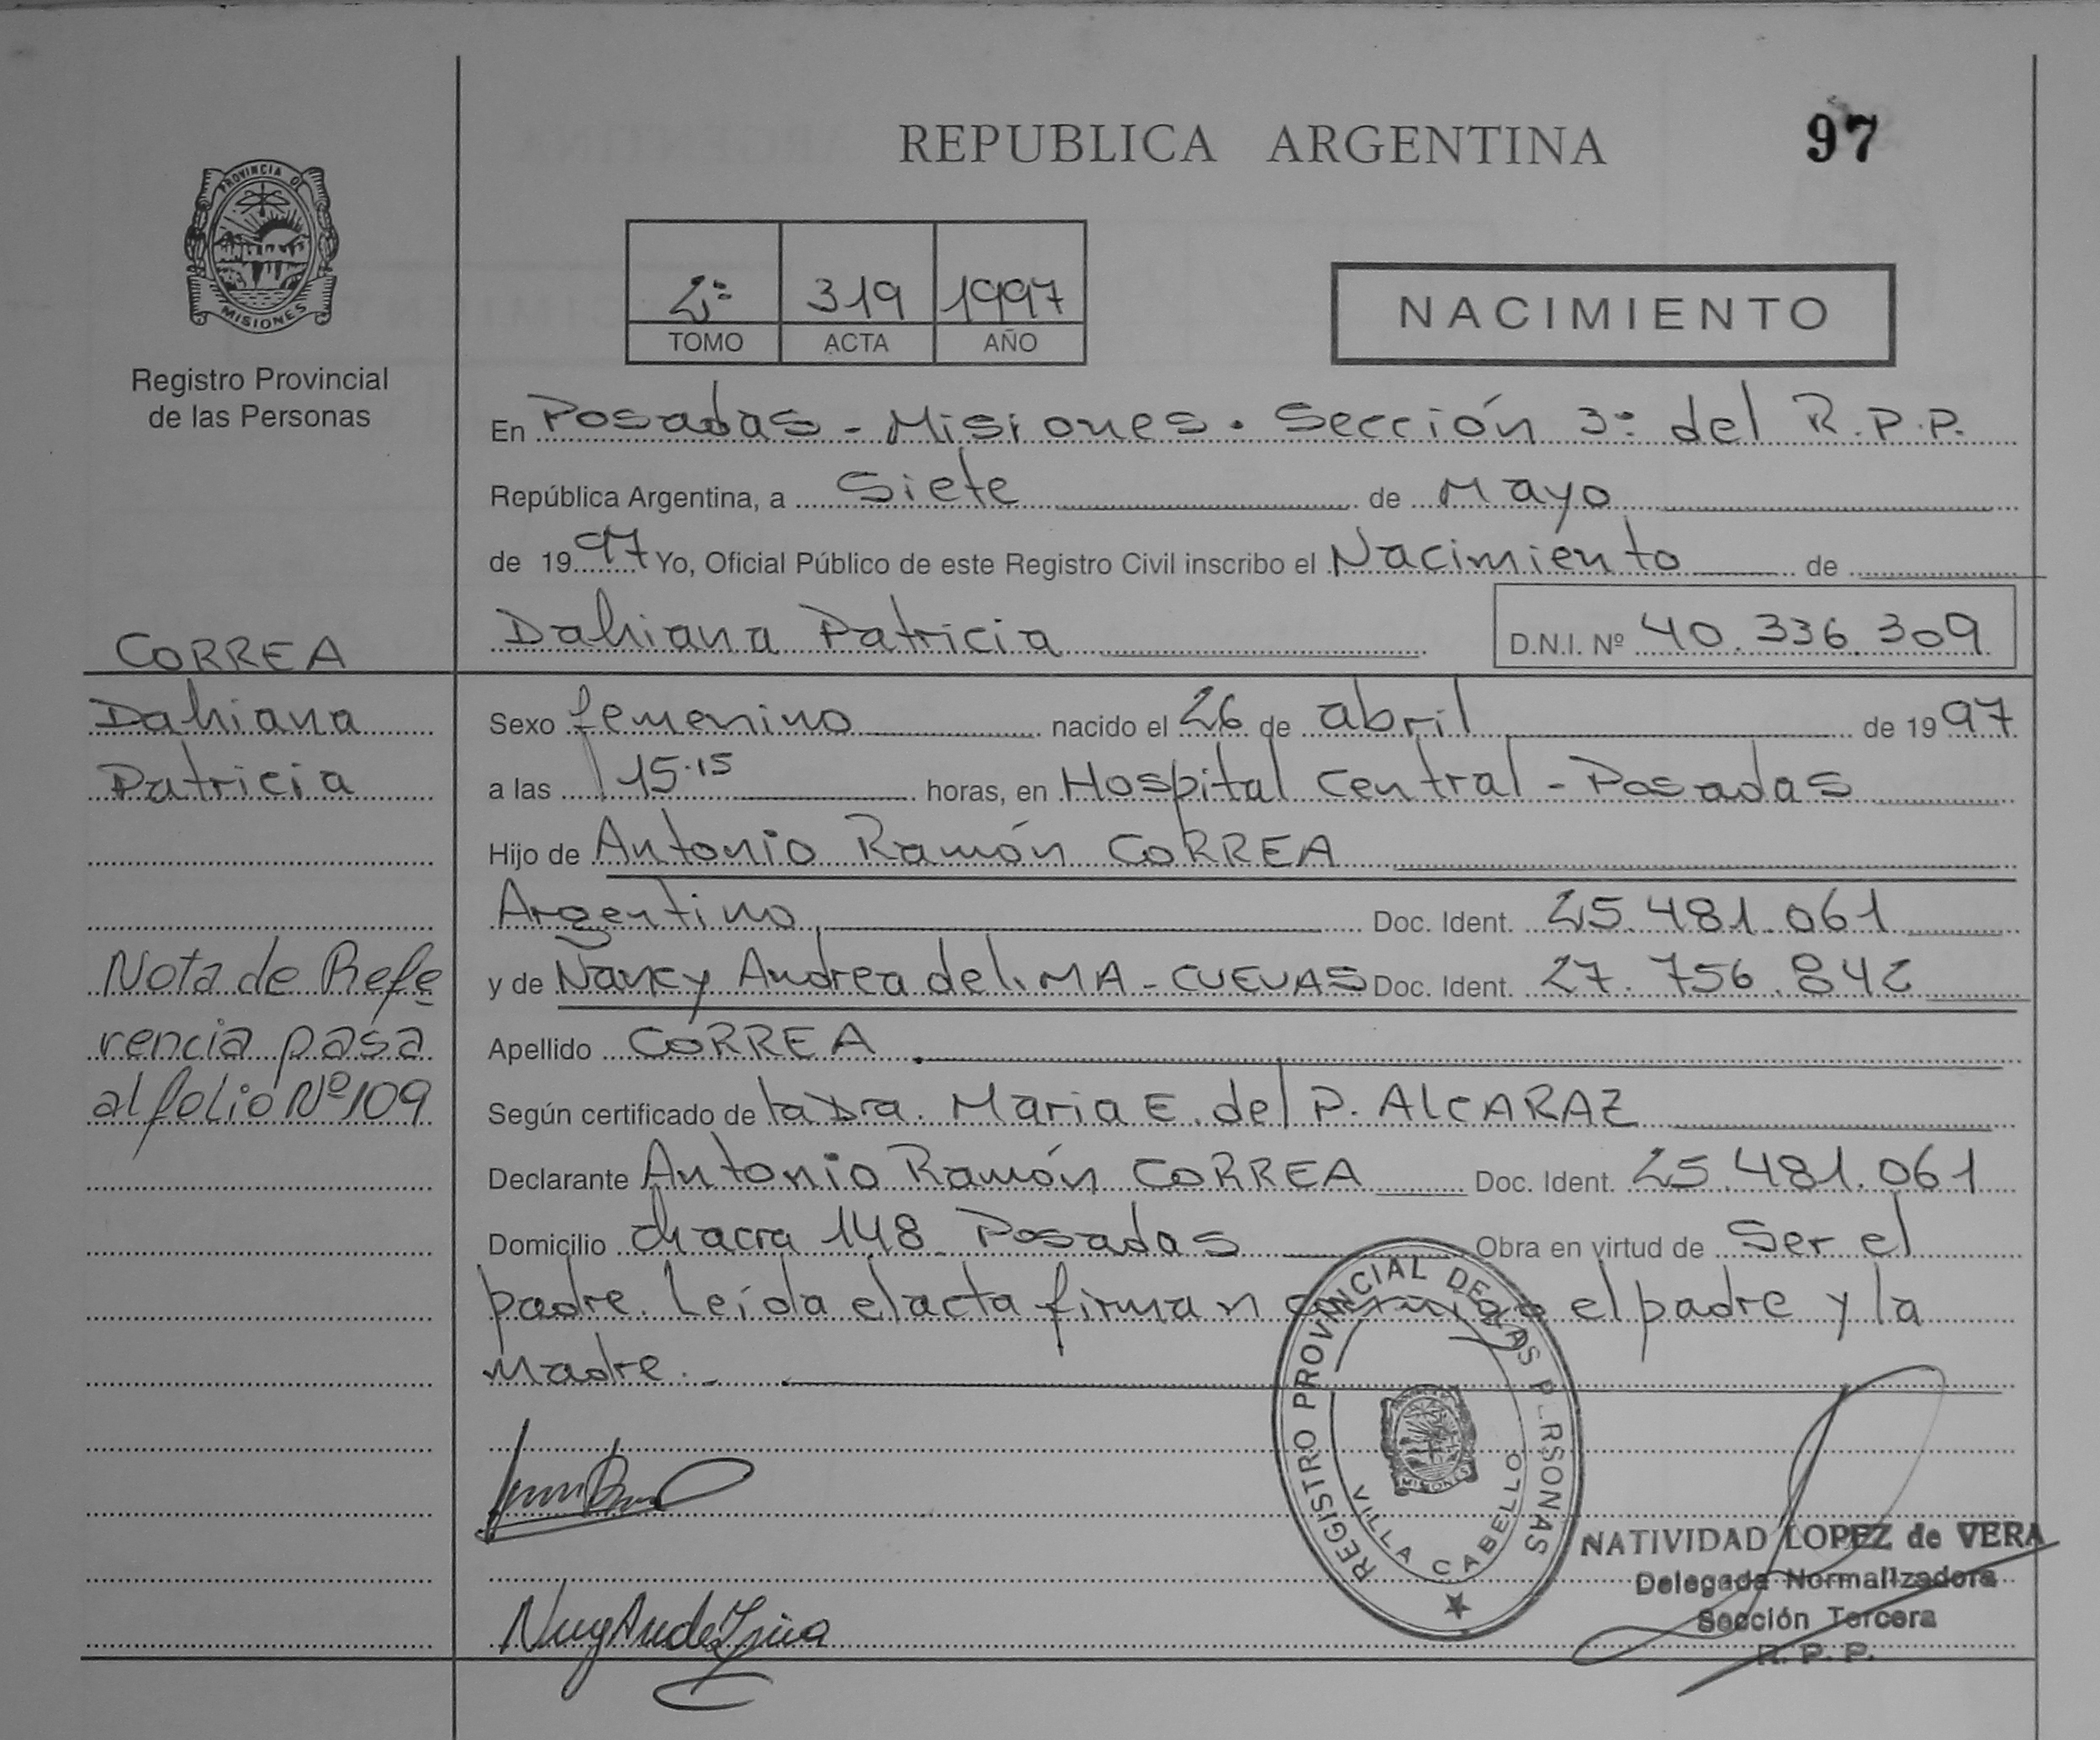 REPUBLICA ARGENTINA
97
PROVINCIA D
MISIONES
Registro Provincial
de las Personas
2º 319 1997
TOMO ACTA AÑO
NACIMIENTO
En Posadas - Misiones. Sección 3º del R.P.P.
República Argentina, a Siete de Mayo
de 1997 Yo, Oficial Público de este Registro Civil inscribo el Nacimiento de
Dahiana Patricia D.N.I. Nº 40.336.309
CORREA
Dahiana
Patricia
Nota de Refe
rencia pasa
al folio Nº 109
Sexo femenino nacido el 26 de abril de 1997
a las 15.15 horas, en Hospital Central - Posadas
Hijo de Antonio Ramón CORREA
Argentino Doc. Ident. 25.481.061
y de Nancy Andrea de LIMA - CUEVAS Doc. Ident. 27.756.842
Apellido CORREA
Según certificado de la Dra. Maria E. del P. ALCARAZ
Declarante Antonio Ramón CORREA Doc. Ident. 25.481.061
Domicilio chacra 148 Posadas Obra en virtud de Ser el
padre. Leída el acta firman conmigo el padre y la
madre.
REGISTRO PROVINCIAL DE LAS PERSONAS
MISIONES
VILLA CABELLO
NATIVIDAD LOPEZ de VERA
Delegada Normalizadora
Sección Tercera
R. P. P.